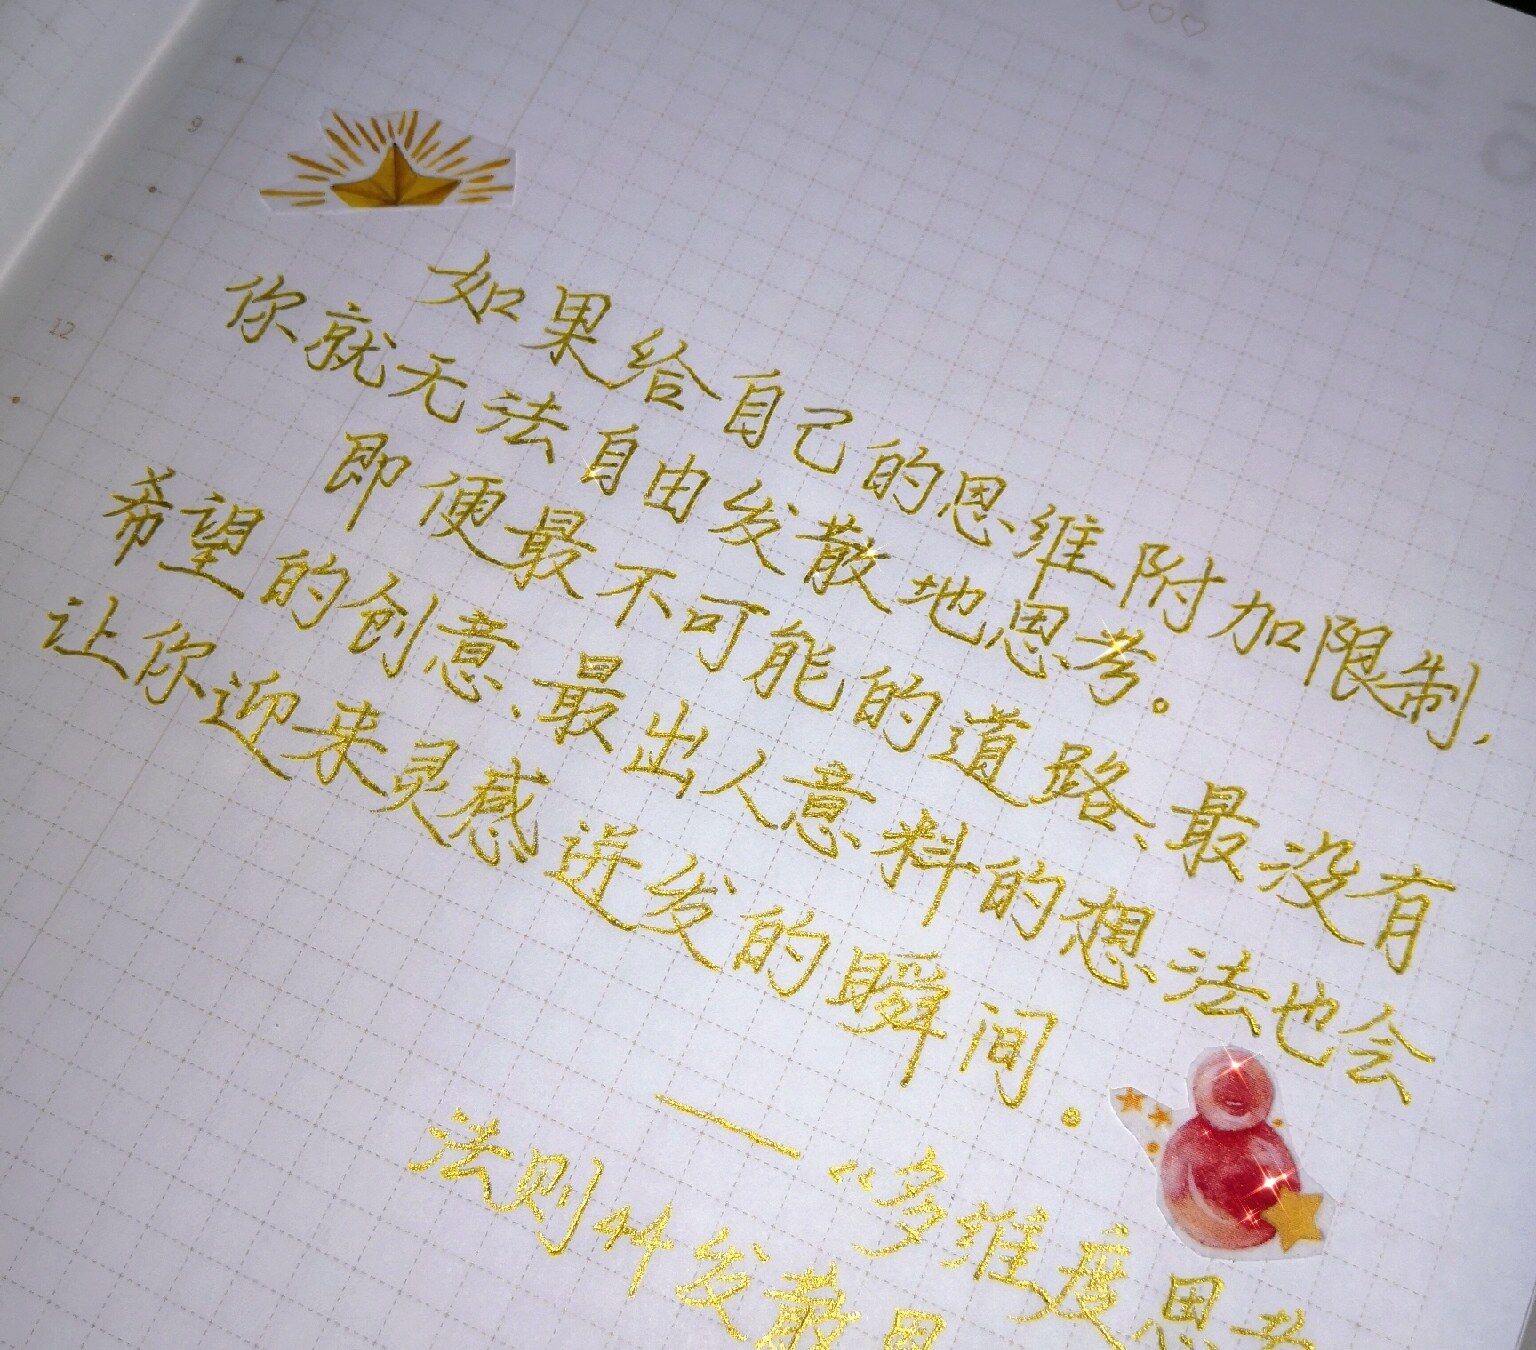 9
12
如果给自己的思维附加限制,
你就无法自由发散地思考。
即便最不可能的道路、最没有
希望的创意、最出人意料的想法也会
让你迎来灵感迸发的瞬间。
——“多维度思考
法则44发散思